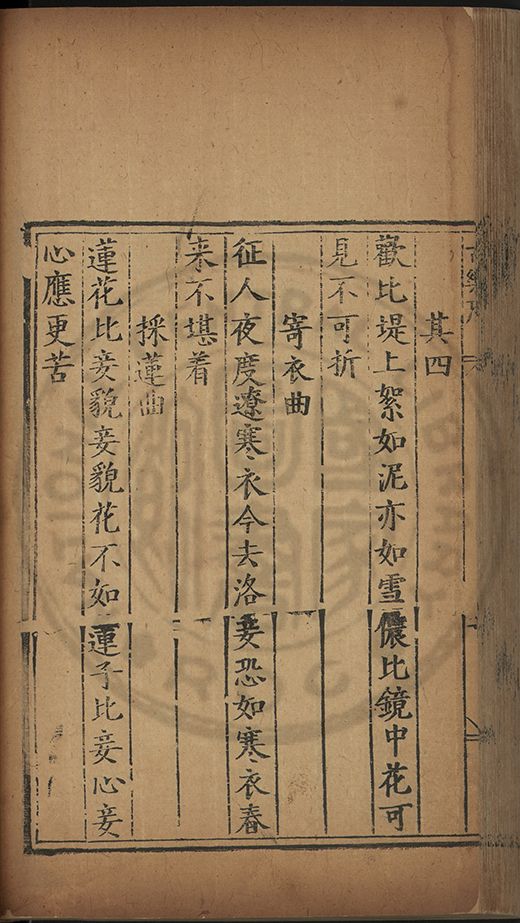 其四
歡比堤上絮如泥亦如雪儂比鏡中花可
見不可折
寄衣曲
征人夜度遼寒衣今去洛妾恐如寒衣春
来不堪着
採蓮曲
蓮花比妾貌妾貌花不如蓮子比妾心妾
心應更苦